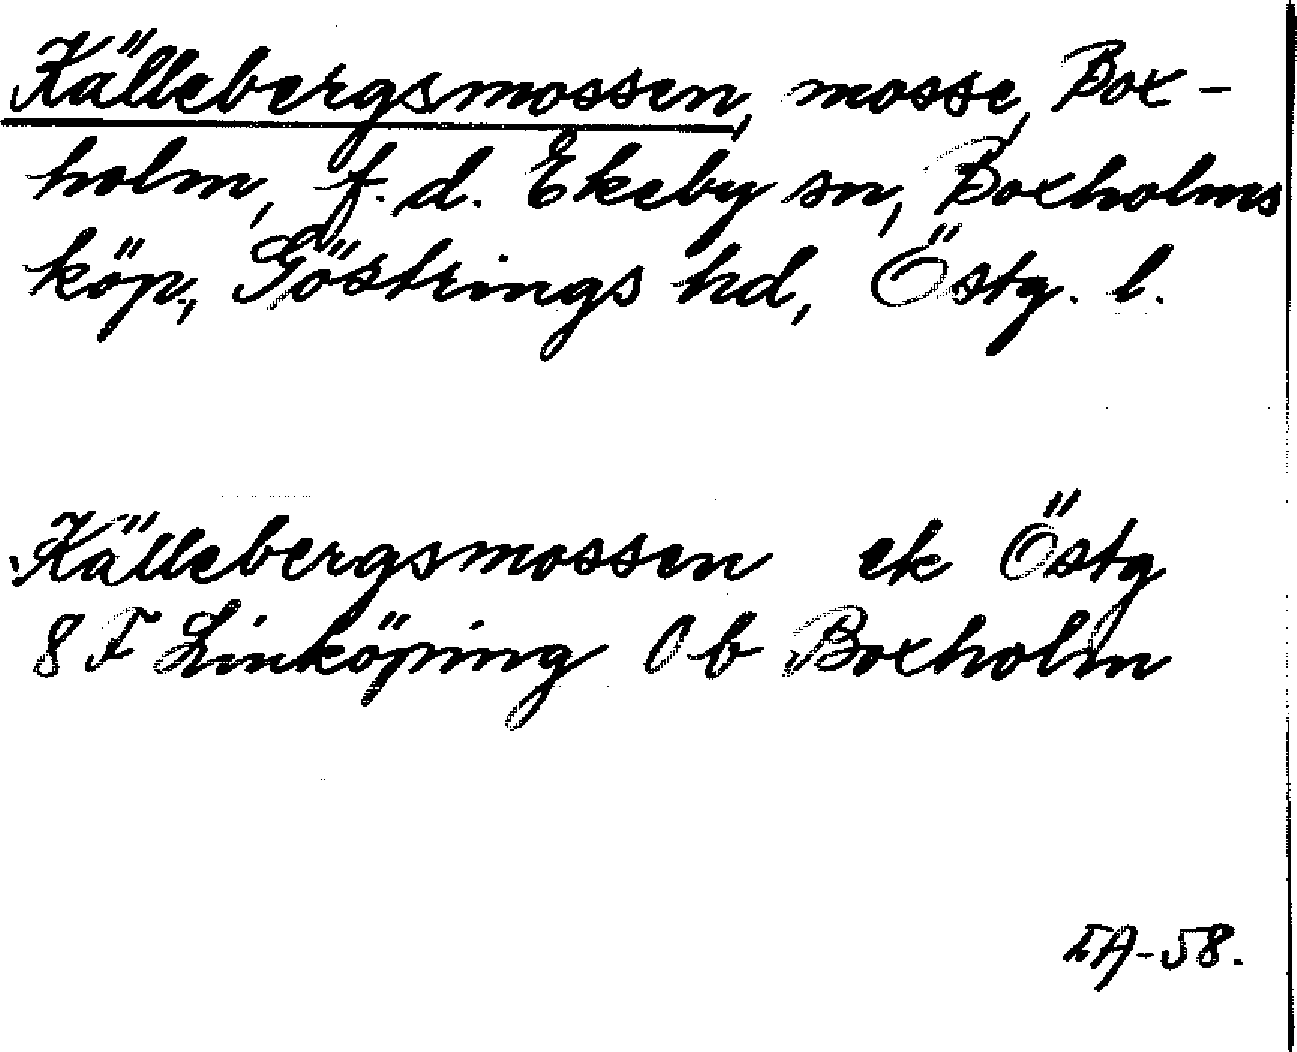 Källebergsmossen, mosse, Box-
holm, f.d. Ekeby sn, Boxholms
köp., Göstrings hd, Östg. l.
Källebergsmossen ek Östg
8F Linköping 0b Boxholm
IA-58.